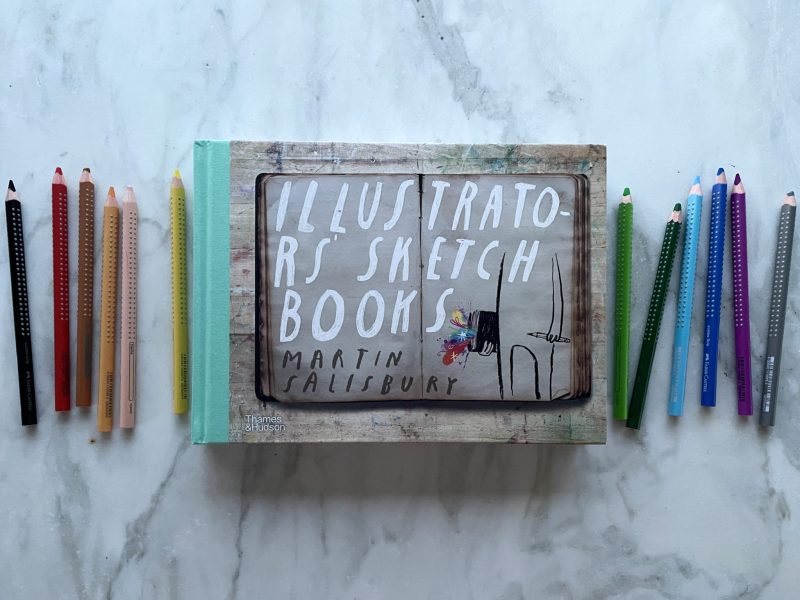 ILLUSTRATO-
RS' SKETCH
BOOKS
MARTIN
SALISBURY
Thames
&Hudson